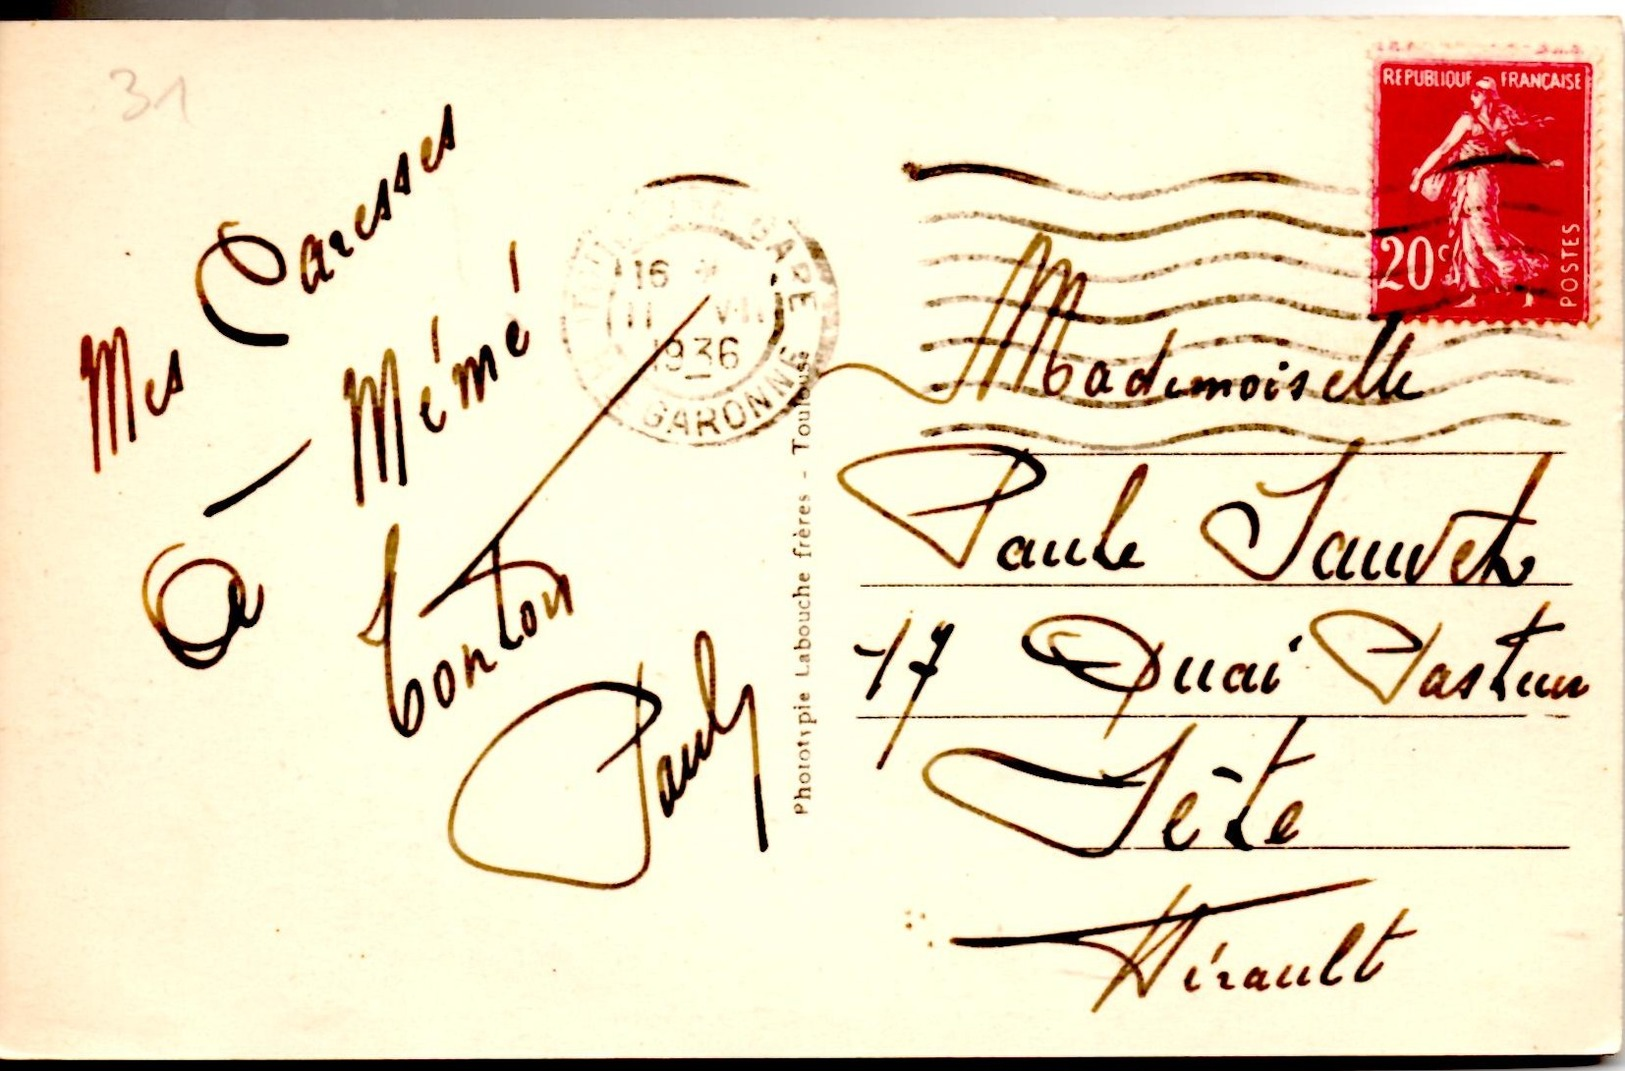 31
Mes Caresses
à Mémé
Tonton
Pauly
GARE
16
11 VII
1936
GARONNE
Phototypie Labouche frères - Toulouse
REPUBLIQUE FRANÇAISE
20c
POSTES
Mademoiselle
Paule Sauvet
17 Quai Pasteur
Sète
Hérault